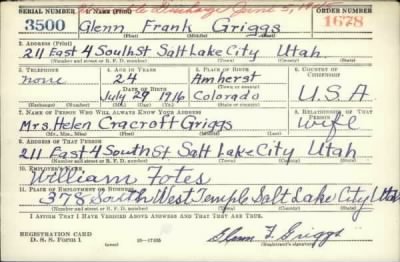 SERIAL NUMBER 1. NAME (Print) ORDER NUMBER
3500 Glenn Frank Griggs 1678
(First) (Middle) (Last)
2. ADDRESS (Print)
211 East 4 South St Salt Lake City Utah
(Number and street or R. F. D. number) (Town) (County) (State)
3. TELEPHONE 4. AGE IN YEARS 5. PLACE OF BIRTH 6. COUNTRY OF CITIZENSHIP
none 24 Amherst
DATE OF BIRTH (Town or county)
July 29 1916 Colorado U.S.A
(Exchange) (Number) (Mo.) (Day) (Yr.) (State or country)
7. NAME OF PERSON WHO WILL ALWAYS KNOW YOUR ADDRESS 8. RELATIONSHIP OF THAT PERSON
Mrs Helen Cracroft Griggs wife
(Mr., Mrs., Miss) (First) (Middle) (Last)
9. ADDRESS OF THAT PERSON
211 East 4 South St Salt Lake City Utah
(Number and street or R. F. D. number) (Town) (County) (State)
10. EMPLOYER'S NAME
William Fotes
11. PLACE OF EMPLOYMENT OR BUSINESS
378 South West Temple Salt Lake City Utah
(Number and street or R. F. D. number) (Town) (County) (State)
I AFFIRM THAT I HAVE VERIFIED ABOVE ANSWERS AND THAT THEY ARE TRUE.
REGISTRATION CARD
D. S. S. Form 1 Glenn F. Griggs
(Registrant's signature)